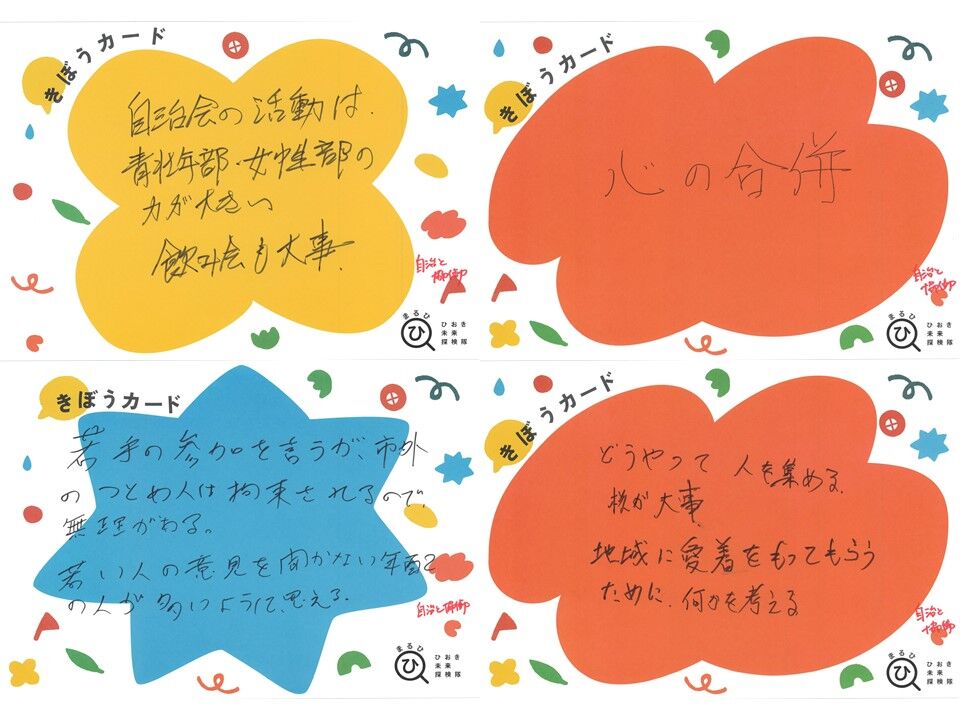 きぼうカード
自治会の活動は、
青壮年部・女性部の
力が大きい
飲み会も大事、
自治と
まるひ
ひ
ひおき
未来
探検隊
きぼうカード
心の合併
自治と
まるひ
ひ
ひおき
未来
探検隊
きぼうカード
若手の参加を言うが、市外
のつとめ人は拘束されるので、
無理がある。
若い人の意見を聞かない年配
の人が多いように思える。
自治と
まるひ
ひ
ひおき
未来
探検隊
きぼうカード
どうやって 人を集める
が大事、
地域に愛着をもってもらう
ために、何かを考える
自治と
まるひ
ひ
ひおき
未来
探検隊